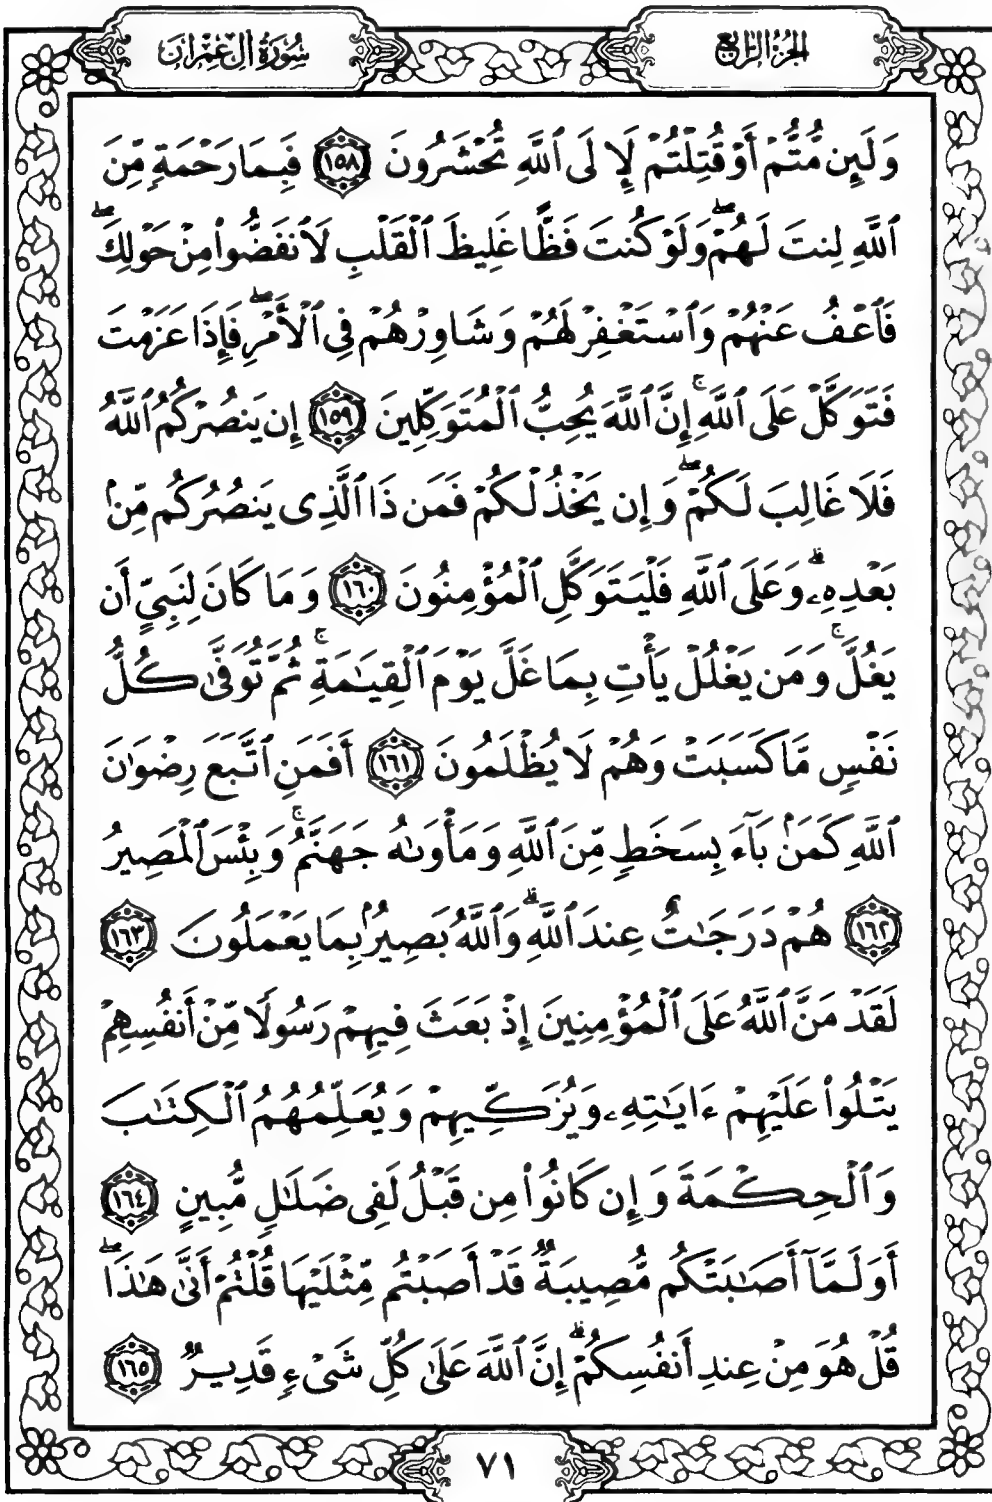 الجُزْءُ الرَّابِعُ
سُورَةُ آلِ عِمْرَانَ
وَلَئِن مُّتُّمْ أَوْ قُتِلْتُمْ لَإِلَى ٱللَّهِ تُحْشَرُونَ ١٥٨ فَبِمَا رَحْمَةٍ مِّنَ
ٱللَّهِ لِنتَ لَهُمْ ۖ وَلَوْ كُنتَ فَظًّا غَلِيظَ ٱلْقَلْبِ لَٱنفَضُّوا۟ مِنْ حَوْلِكَ ۖ
فَٱعْفُ عَنْهُمْ وَٱسْتَغْفِرْ لَهُمْ وَشَاوِرْهُمْ فِى ٱلْأَمْرِ ۖ فَإِذَا عَزَمْتَ
فَتَوَكَّلْ عَلَى ٱللَّهِ ۚ إِنَّ ٱللَّهَ يُحِبُّ ٱلْمُتَوَكِّلِينَ ١٥٩ إِن يَنصُرْكُمُ ٱللَّهُ
فَلَا غَالِبَ لَكُمْ ۖ وَإِن يَخْذُلْكُمْ فَمَن ذَا ٱلَّذِى يَنصُرُكُم مِّنۢ
بَعْدِهِۦ ۗ وَعَلَى ٱللَّهِ فَلْيَتَوَكَّلِ ٱلْمُؤْمِنُونَ ١٦٠ وَمَا كَانَ لِنَبِىٍّ أَن
يَغُلَّ ۚ وَمَن يَغْلُلْ يَأْتِ بِمَا غَلَّ يَوْمَ ٱلْقِيَٰمَةِ ۚ ثُمَّ تُوَفَّىٰ كُلُّ
نَفْسٍ مَّا كَسَبَتْ وَهُمْ لَا يُظْلَمُونَ ١٦١ أَفَمَنِ ٱتَّبَعَ رِضْوَٰنَ
ٱللَّهِ كَمَنۢ بَآءَ بِسَخَطٍ مِّنَ ٱللَّهِ وَمَأْوَىٰهُ جَهَنَّمُ ۚ وَبِئْسَ ٱلْمَصِيرُ
١٦٢ هُمْ دَرَجَٰتٌ عِندَ ٱللَّهِ ۗ وَٱللَّهُ بَصِيرٌۢ بِمَا يَعْمَلُونَ ١٦٣
لَقَدْ مَنَّ ٱللَّهُ عَلَى ٱلْمُؤْمِنِينَ إِذْ بَعَثَ فِيهِمْ رَسُولًا مِّنْ أَنفُسِهِمْ
يَتْلُوا۟ عَلَيْهِمْ ءَايَٰتِهِۦ وَيُزَكِّيهِمْ وَيُعَلِّمُهُمُ ٱلْكِتَٰبَ
وَٱلْحِكْمَةَ وَإِن كَانُوا۟ مِن قَبْلُ لَفِى ضَلَٰلٍ مُّبِينٍ ١٦٤
أَوَلَمَّآ أَصَٰبَتْكُم مُّصِيبَةٌ قَدْ أَصَبْتُم مِّثْلَيْهَا قُلْتُمْ أَنَّىٰ هَٰذَا ۖ
قُلْ هُوَ مِنْ عِندِ أَنفُسِكُمْ ۗ إِنَّ ٱللَّهَ عَلَىٰ كُلِّ شَىْءٍ قَدِيرٌ ١٦٥
٧١